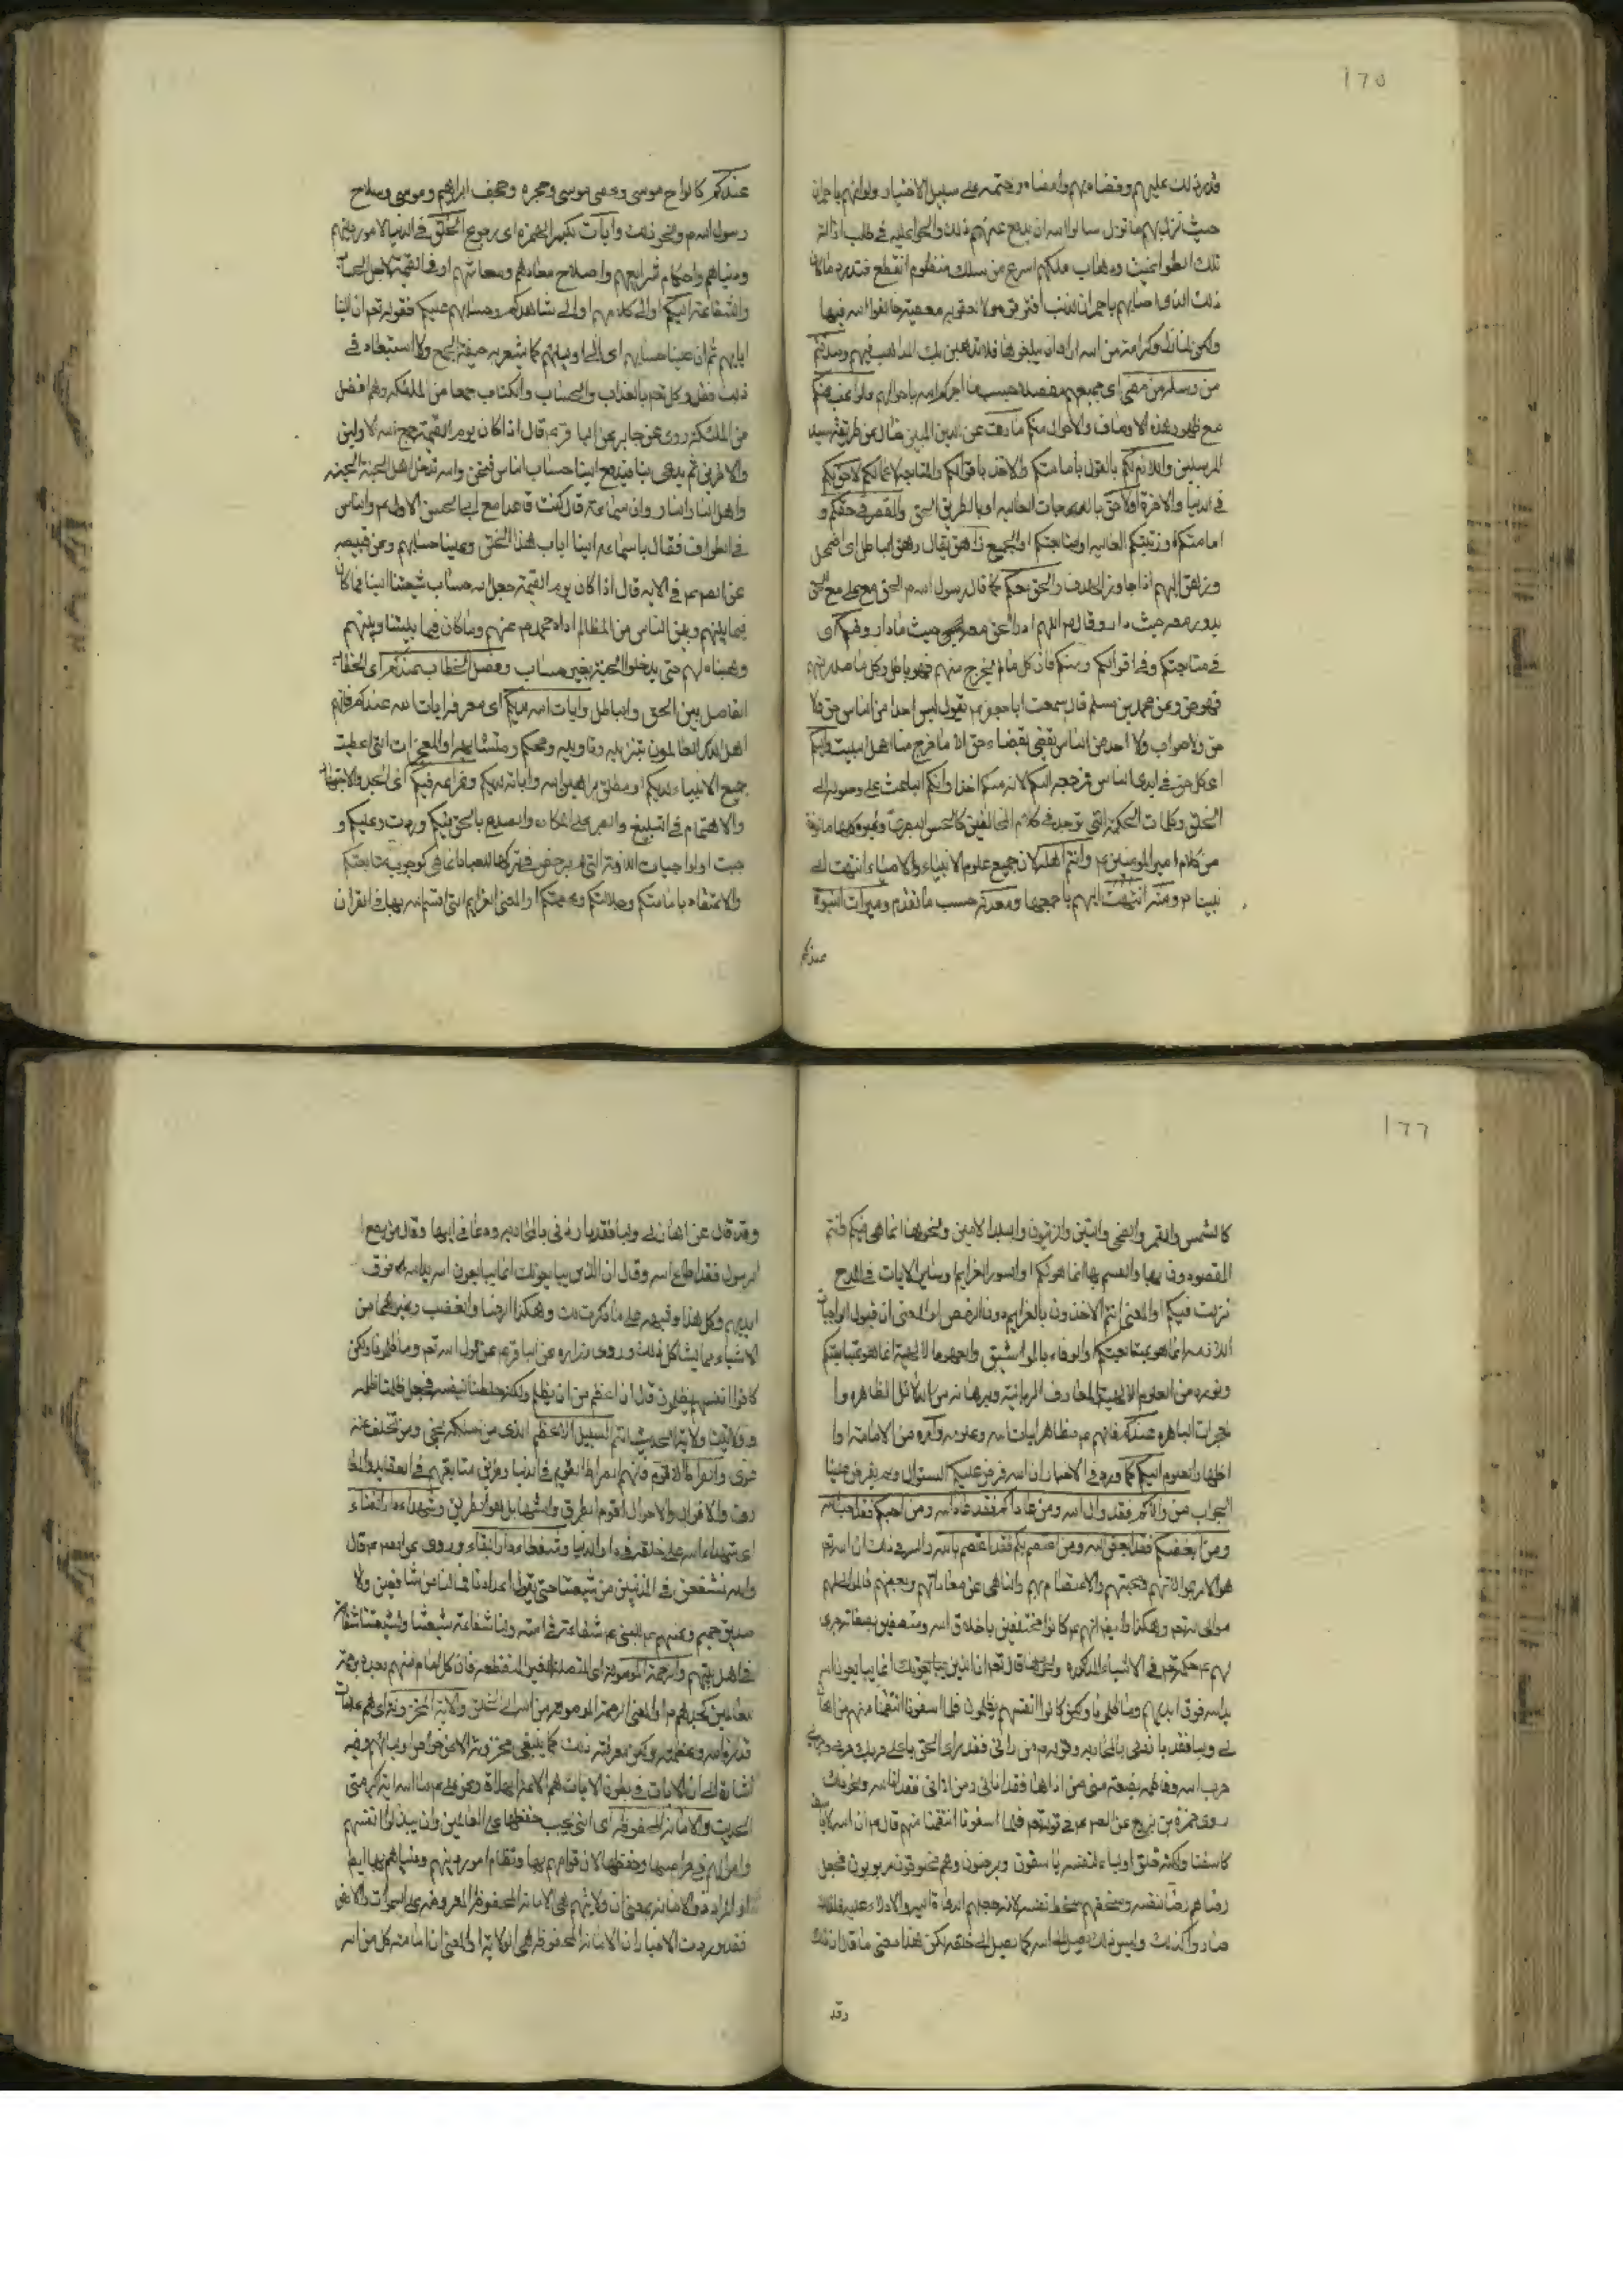 ١٦٥
قدر ذلك عليهم وقضاه وامضاه وحتمه على سبيل الاختيار ولو انهم يا حمران
حيث نزل بهم ما نزل سالوا الله ان يدفع عنهم ذلك والحوا عليه في طلب ازالة
تلك الطواغيت وذهاب ملكهم اسرع من سلك منظوم انقطع فتبدد وما كان
ذلك الذي اصابهم يا حمران لذنب اقترفوه ولا لعقوبة معصية خالفوا الله فيها
ولكن لمنازل وكرامة من الله اراد ان يبلغوها فلا تذهبن بك المذاهب فيهم وصدقتم
من رسله من مضى اي جميعهم مفصلا حسب ما اخبركم الله باحوالهم فالراغب عنكم
مع ظهور هذه الاوصاف والاحوال منكم مارق عن الدين المبين ضال عن طريقة سيد
المرسلين واللازم لكم بالقول بامامتكم والاخذ باقوالكم والمتابعة لاعمالكم لاحق بكم
في الدنيا والاخرة او لاحق بالدرجات العالية او بالطريق الحق والمقصر في حقكم و
امامتكم ورتبتكم العالية او متابعتكم او الجميع زاهق يقال زهق الباطل اي اضمحل
وزهق السهم اذا جاوز الهدف والحق معكم كما قال رسول الله ص الحق مع علي مع الحق
يدور معه حيث دار وقال ص اللهم ادر الحق معه حيث ما دار وفيكم اي
في متابعتكم وفي اقوالكم ومنكم فان كل ما لم يخرج منهم فهو باطل وكل ما صدر منهم
فهو حق وعن محمد بن مسلم قال سمعت ابا جعفر ع يقول ليس احد من الناس حق ولا
من ولا صواب ولا احد من الناس يقضي بقضاء حق الا ما خرج منا اهل البيت واليكم
اي كل حق في ايدي الناس مرجعه اليكم لانه منكم اخذ او انكم الباعث على وصوله الى
الخلق وكلمات الحكمة التي توجد في كلام المخالفين كالحسن البصري وغيره كلها ماخوذة
من كلام امير المؤمنين ع وانتم اهله لان جميع علوم الانبياء والاوصياء انتهت الى
نبينا ص ومنه انتهت اليهم باجمعها ومعدنه حسب ما تقدم وميراث النبوة
عندكم
عندكم كالواح موسى وعصى موسى وحجره وصحف ابراهيم وموسى وسلاح
رسول الله ص ونحو ذلك واياب بكسر الهمزة اي رجوع الخلق في الدنيا لامور دينهم
ودنياهم واحكام شرايعهم واصلاح معادهم ومعاشهم او في القيمة لاجل الحساب
والشفاعة اليكم او الى كلامهم او الى مشاهدكم وحسابهم عليكم فقوله تعم ان الينا
ايابهم ثم ان علينا حسابهم اي الى اوليائهم كما يشعر به صيغة الجمع ولا استبعاد في
ذلك فقد وكل تعم بالعذاب والحساب والكتاب جمعا من الملئكة وهم افضل
من الملئكة روى عن جابر عن الباقر ع قال اذا كان يوم القيمة جمع الله الاولين
والاخرين ثم يدعى بنا فيدفع الينا حساب الناس فنحن والله ندخل اهل الجنة الجنة
واهل النار النار وان سماعة قال كنت قاعدا مع ابي الحسن الاول ع والناس
في الطواف فقال يا سماعة الينا اياب هذا الخلق وعلينا حسابهم وعن قبيصة
عن الصم ع في الاية قال اذا كان يوم القيمة جعل الله حساب شيعتنا الينا فما كان
فيما بينهم وبين الناس من المظالم اداه محمد ص عنهم وما كان فيما بيننا وبينهم
وهبناه لهم حتى يدخلوا الجنة بغير حساب وفصل الخطاب عندكم اي الخطاب
الفاصل بين الحق والباطل وايات الله لديكم اي معرفة ايات الله عندكم فانهم
اهل الذكر العالمون بتنزيله وتاويله ومحكمه ومتشابهه او المعجزات التي اعطيت
جميع الانبياء لديكم او مطلق براهين الله واياته لديكم وعزائمه فيكم اي الجد والاجتهاد
والاهتمام في التبليغ والصبر على المكاره والصدع بالحق فيكم وردت وعليكم و
جبت او الواجبات اللازمة التي لم يرخص في تركها للعباد انما هي كوجوب متابعتكم
والاعتقاد بامامتكم وجلالتكم وعصمتكم او المعنى العزايم التي اقسم الله بها في القران
١٦٦
كالشمس والقمر والضحى والتين والزيتون والبلد الامين ونحوها انما هي فيكم وانتم
المقصودون بها والقسم بها انما هو لكم او السور العزايم وساير الايات في المدح
نزلت فيكم او المعنى انتم الاخذون بالعزايم دون الرخص او المعنى ان قبول الواجبات
اللازمة انما هو بمتابعتكم والوفاء بالمواثيق والعهود الالهية انما هو بمتابعتكم
ونوره من العلوم الالهية والمعارف الربانية وبرهانه من الدلائل الظاهرة وا
لمعجزات الباهرة عندكم فانهم ع مظاهر ايات الله وعلومه وامره من الامامة او
اظهار العلوم اليكم كما ورد في الاخبار ان الله فرض عليكم السؤال ولم يفرض علينا
الجواب من والاكم فقد والى الله ومن عاداكم فقد عاد الله ومن احبكم فقد احب الله
ومن ابغضكم فقد ابغض الله ومن اعتصم بكم فقد اعتصم بالله والسر في ذلك ان الله تعم
هو الامر بموالاتهم ومحبتهم والاعتصام بهم والناهي عن معاداتهم وبغضهم فالموالى لهم
موالى لله تعم وهكذا وايضا فانهم ع كانوا متخلقين باخلاق الله ومتصفين بصفاته جرى
لهم ع حكمه تعم في الاشياء المذكورة ولهذا قال تعم ان الذين يبايعونك انما يبايعون الله
يد الله فوق ايديهم وما ظلمونا ولكن كانوا انفسهم يظلمون فلما اسفونا انتقمنا منهم من اهان
لي وليا فقد بارزني بالمحاربة وقوله ص من راني فقد راى الحق يا علي حربك حربي وحربي
حرب الله وفاطمة بضعة مني من اذاها فقد اذاني ومن اذاني فقد اذى الله ونحو ذلك
روى حمزة بن بزيع عن الصم ع في قوله تعم فلما اسفونا انتقمنا منهم قال ع ان الله لا ياسف
كاسفنا ولكنه خلق اولياء لنفسه ياسفون ويرضون وهم مخلوقون مربوبون فجعل
رضاهم رضا نفسه وسخطهم سخط نفسه لانه جعلهم الدعاة اليه والادلاء عليه فلذلك
صاروا كذلك وليس ذلك يصل الى الله كما يصل الى خلقه لكن هذا معنى ما قال من ذلك
وقد
وقد قال من اهان لي وليا فقد بارزني بالمحاربة ودعاني اليها وقال من يطع ا
لرسول فقد اطاع الله وقال ان الذين يبايعونك انما يبايعون الله يد الله فوق
ايديهم وكل هذا وشبهه على ما ذكرت لك وهكذا الرضا والغضب وغيرهما من
الاشياء مما يشاكل ذلك وروى زرارة عن الباقر ع عن قول الله تعم وما ظلمونا ولكن
كانوا انفسهم يظلمون قال ان الله اعظم من ان يظلم ولكنه خلطنا بنفسه فجعل ظلمنا ظلمه
وولايتنا ولايته الحديث انتم السبيل الاعظم الذي من سلكه نجى ومن تخلف عنه
غوى والصراط الاقوم فانهم الصراط القويم في الدنيا وطريق متابعتهم في العقايد والمعا
رف والاقوال والاحوال اقوم الطرق وامتنها بل هو الطريق وشهداء دار الفناء
اي شهداء الله على خلقه في دار الدنيا وشفعاء دار البقاء وروى عن الصم ع قال
والله لنشفعن في المذنبين من شيعتنا حتى يقول اعداؤنا فما لنا من شافعين ولا
صديق حميم وعنهم ع للنبي ص شفاعة في امته ولنا شفاعة شيعتنا ولشيعتنا شفاعة
في اهل بيتهم والرحمة الموصولة اي المتصلة الغير المنقطعة فان كل امام منهم بعده رحمة
للعالمين كجدهم ص او المعنى الرحمة الموصولة من الله الى الخلق والاية المخزونة اي هم علامات
قدرة الله وعظمته ولكن معرفة ذلك كما ينبغي مخزونة الا عن خواص اوليائهم وفيه
اشارة الى ان الايات في بطون الايات هم الائمة الهداة وعن علي ع ما لله اية اكبر مني
الحديث والامانة المحفوظة اي التي يجب حفظها على العالمين وان يبذلوا انفسهم
واموالهم في حراستها وحفظها لان قوامهم بها ونظام امور دينهم ودنياهم بها ايضا
او المراد ذو الامانة بمعنى ان ولايتهم هي الامانة المحفوظة المعروضة على السموات والارض
فقد وردت الاخبار ان الامانة المحفوظة هي الولاية او المعنى ان امامته كل من الله